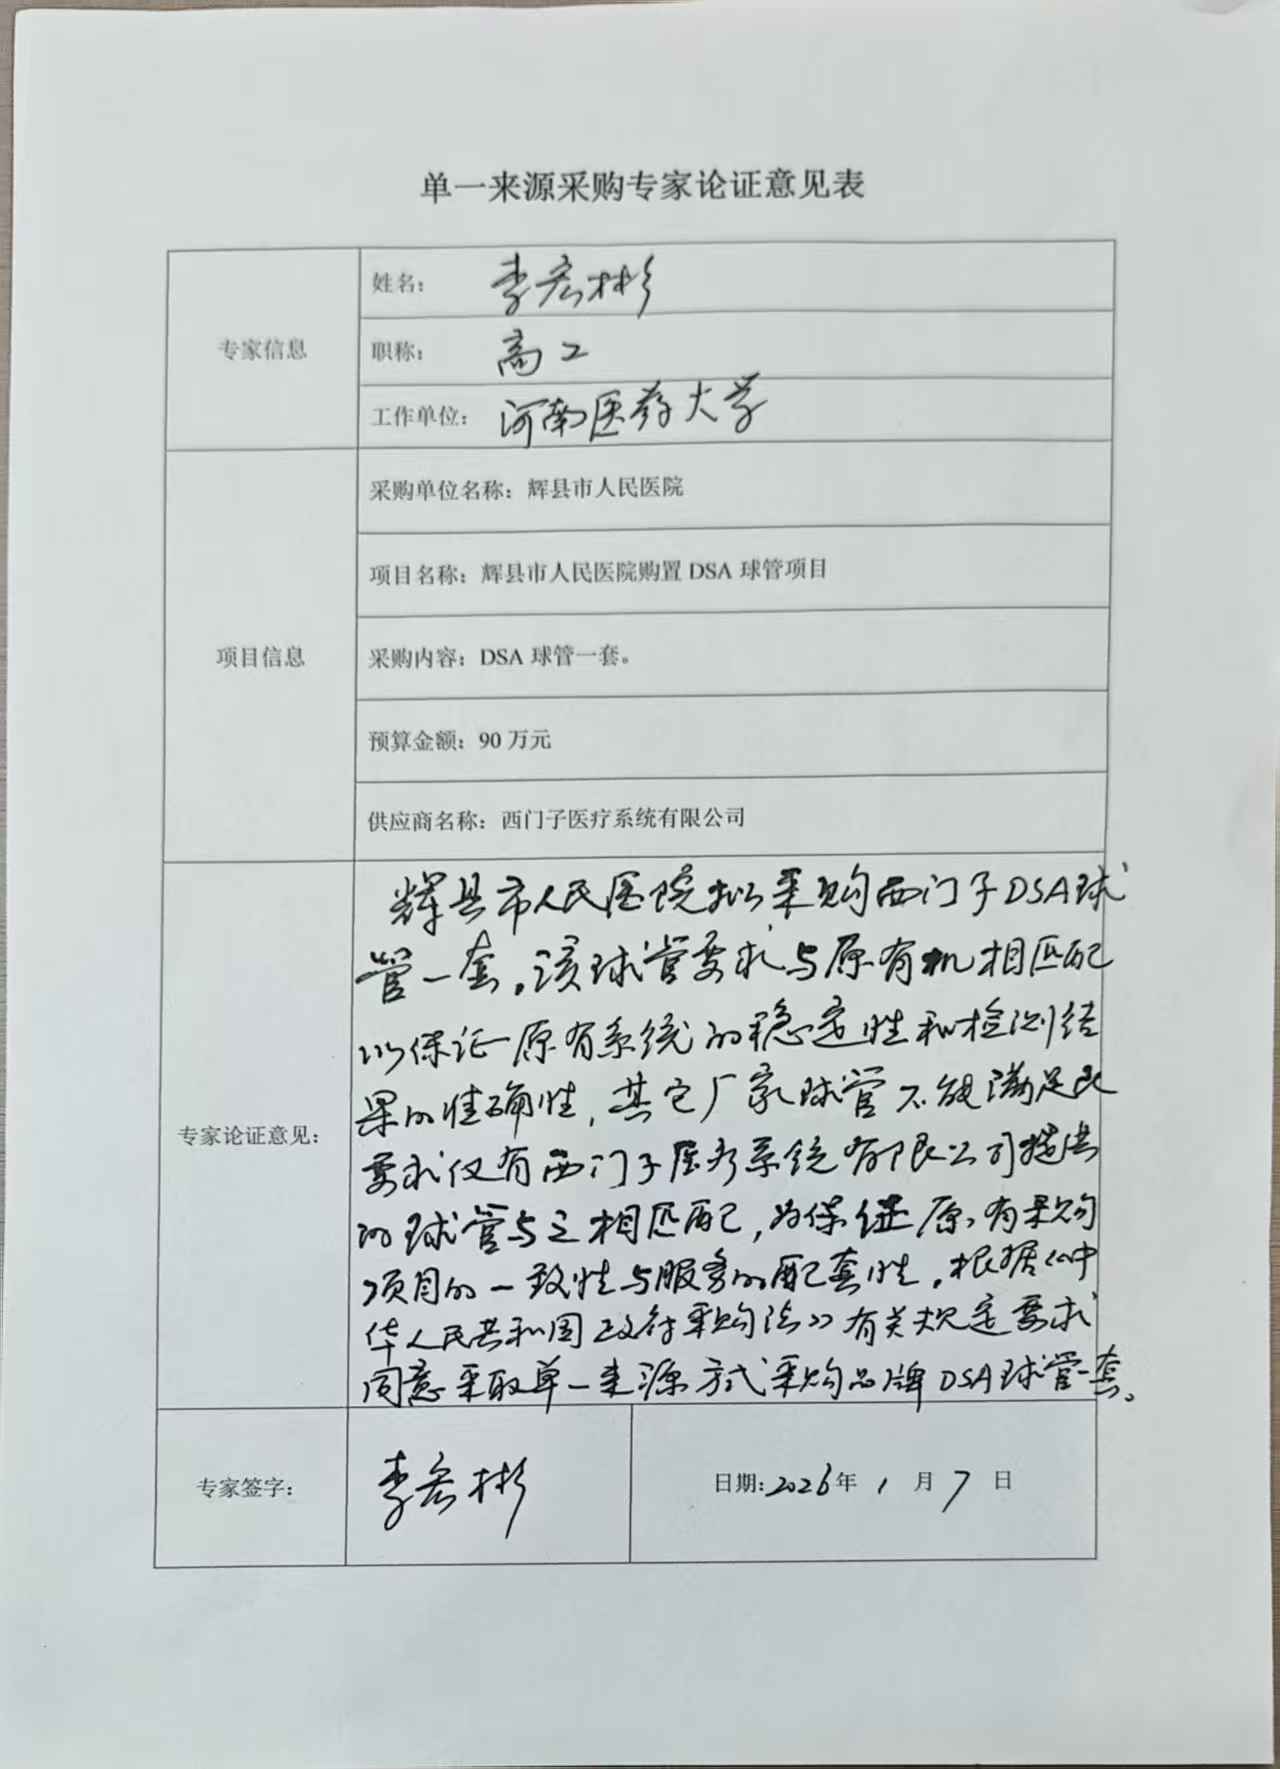 单一来源采购专家论证意见表
专家信息
姓名： 李宏彬
职称： 高工
工作单位： 河南医药大学
项目信息
采购单位名称：辉县市人民医院
项目名称：辉县市人民医院购置 DSA 球管项目
采购内容：DSA 球管一套。
预算金额：90 万元
供应商名称：西门子医疗系统有限公司
专家论证意见：
辉县市人民医院拟采购西门子DSA球
管一套。该球管要求与原有机相匹配
以保证原有系统的稳定性和检测结
果的准确性，其它厂家球管不能满足此
要求仅有西门子医疗系统有限公司提供
的球管与之相匹配，为保继原有采购
项目的一致性与服务的配套性，根据《中
华人民共和国政府采购法》有关规定要求
同意采取单一来源方式采购品牌DSA球管一套。
专家签字： 李宏彬
日期：2026年 1 月 7 日